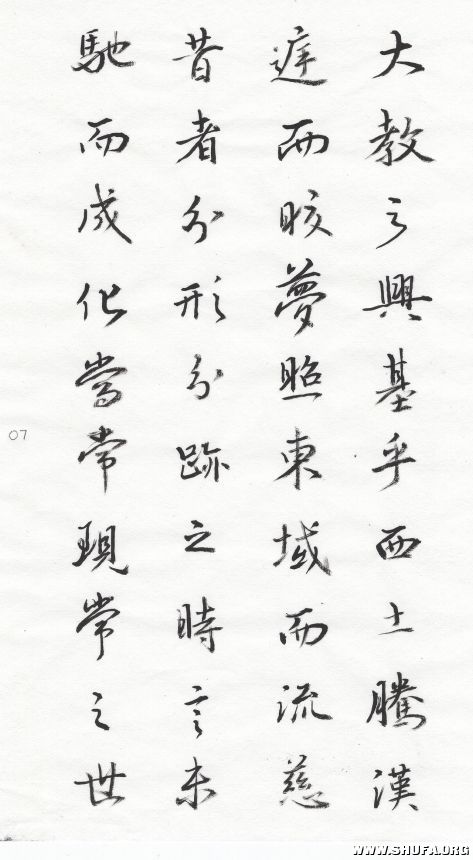 大教之興基乎西土騰漢
庭而皎夢照東域而流慈
昔者分形分跡之時言未
馳而成化當常現常之世
07
WWW.SHUFA.ORG